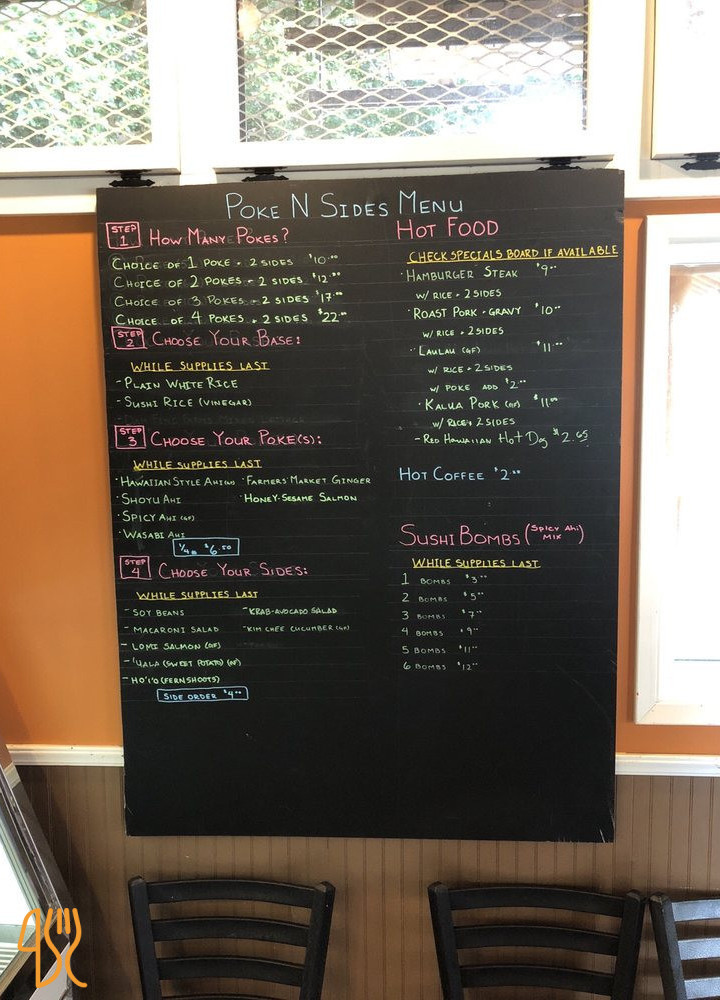 POKE N SIDES MENU
STEP 1 HOW MANY POKES?
CHOICE OF 1 POKE + 2 SIDES $10.00
CHOICE OF 2 POKES + 2 SIDES $12.00
CHOICE OF 3 POKES + 2 SIDES $17.00
CHOICE OF 4 POKES + 2 SIDES $22.00
STEP 2 CHOOSE YOUR BASE:
WHILE SUPPLIES LAST
- PLAIN WHITE RICE
- SUSHI RICE (VINEGAR)
STEP 3 CHOOSE YOUR POKE(S):
WHILE SUPPLIES LAST
· HAWAIIAN STYLE AHI · FARMERS' MARKET GINGER
· SHOYU AHI · HONEY-SESAME SALMON
· SPICY AHI (GF)
· WASABI AHI
1/4 = $6.50
STEP 4 CHOOSE YOUR SIDES:
WHILE SUPPLIES LAST
- SOY BEANS - KRAB-AVOCADO SALAD
- MACARONI SALAD - KIM CHEE CUCUMBER (GF)
- LOMI SALMON (GF)
- 'UALA (SWEET POTATO)
- HO'I'O (FERNSHOOTS)
SIDE ORDER $4.00
HOT FOOD
CHECK SPECIALS BOARD IF AVAILABLE
· HAMBURGER STEAK $9.00
W/ RICE + 2 SIDES
· ROAST PORK + GRAVY $10.00
W/ RICE + 2 SIDES
· LAULAU (GF) $11.00
W/ RICE + 2 SIDES
W/ POKE ADD $2.00
· KALUA PORK (GF) $11.00
W/ RICE + 2 SIDES
- RED HAWAIIAN HOT DOG $2.65
HOT COFFEE $2.00
SUSHI BOMBS (SPICY AHI MIX)
WHILE SUPPLIES LAST
1 BOMBS $3.00
2 BOMBS $5.00
3 BOMBS $7.00
4 BOMBS $9.00
5 BOMBS $11.00
6 BOMBS $12.00